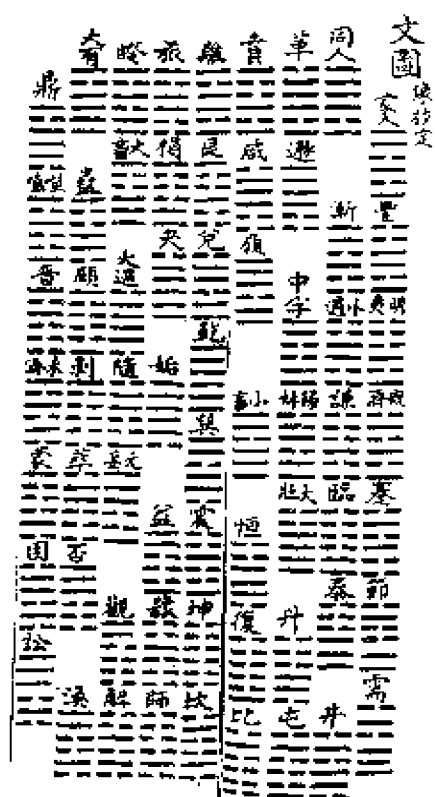 文圖
家人 豐 明夷 既濟 蹇 節 需
同人 漸 小過 謙 臨 泰 井
革 遯 中孚 歸妹 大壯 升 屯
賁 咸 損 小畜 恒 復 比
離 艮 兌 巽 震 坤 坎
旅 夬 姤 益 師
睽 大畜 大過 隨 无妄 觀 解
大有 蠱 頤 剝 萃 否 渙
鼎 噬嗑 晉 未濟 蒙 困 訟